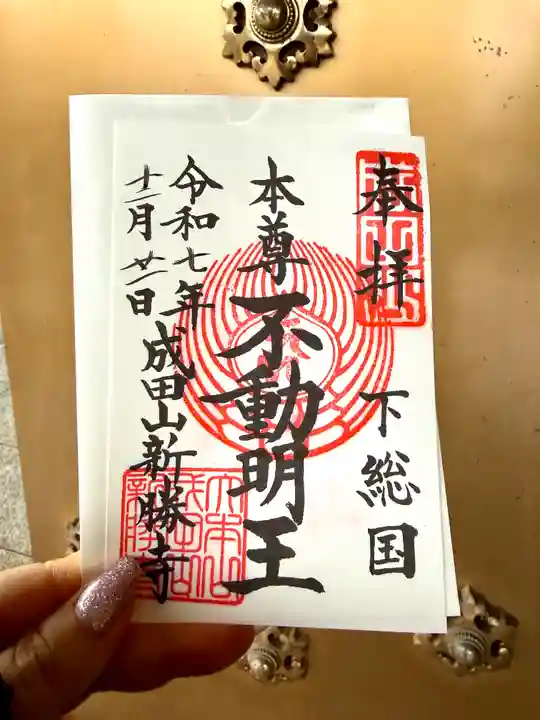 奉拝
下総国
本尊不動明王
令和七年
十二月廿一日
成田山新勝寺